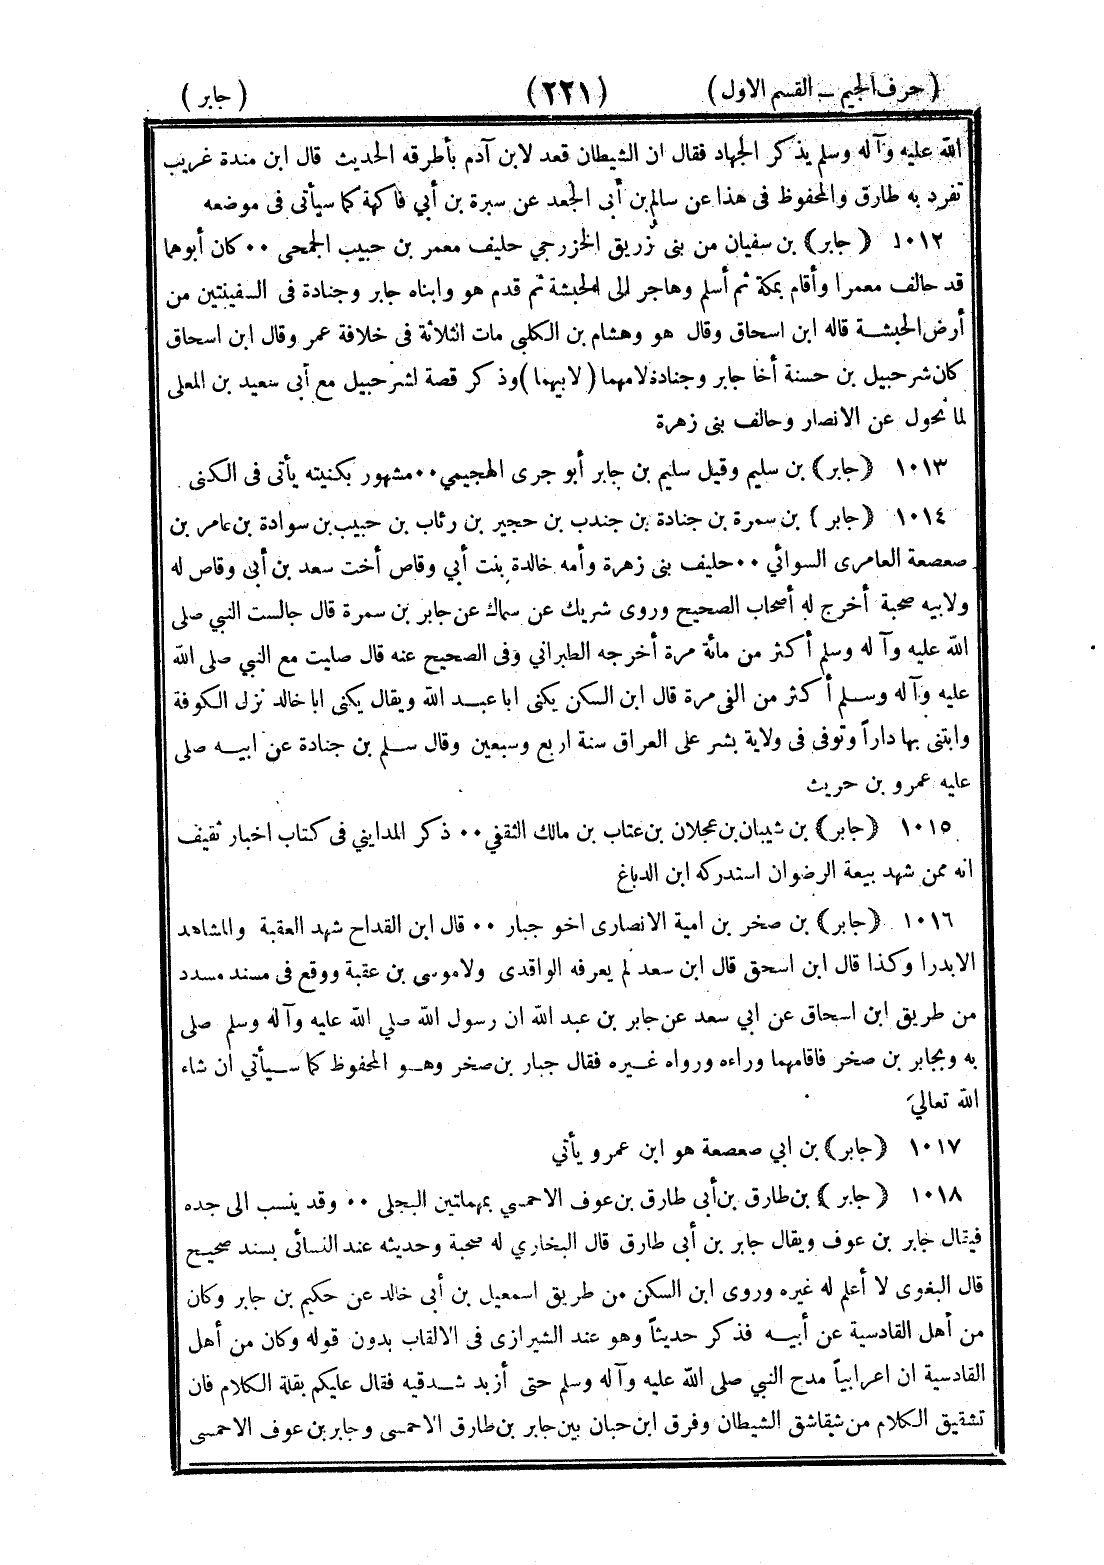 (حرف الجيم ـ القسم الاول) (٢٢١) (جابر)
الله عليه وآله وسلم يذكر الجهاد فقال ان الشيطان قعد لابن آدم بأطرقه الحديث قال ابن مندة غريب
تفرد به طارق والمحفوظ فى هذا عن سالم بن أبى الجعد عن سبرة بن أبي فاكهة كما سيأتى فى موضعه
١٠١٢ (جابر) بن سفيان من بنى زُريق الخزرجي حليف معمر بن حبيب الجمحى ٠٠ كان أبوهما
قد حالف معمرا وأقام بمكة ثم أسلم وهاجر الى الحبشة ثم قدم هو وابناه جابر وجنادة فى السفينتين من
أرض الحبشة قاله ابن اسحاق وقال هو وهشام بن الكلبي مات الثلاثة فى خلافة عمر وقال ابن اسحاق
كان شرحبيل بن حسنة أخا جابر وجنادة لامهما (لابيهما) وذكر قصة لشرحبيل مع أبى سعيد بن المعلى
لما تحول عن الانصار وحالف بنى زهرة
١٠١٣ (جابر) بن سليم وقيل سليم بن جابر أبو جرى الهجيمي ٠٠ مشهور بكنيته يأتى فى الكنى
١٠١٤ (جابر) بن سمرة بن جنادة بن جندب بن حجير بن رئاب بن حبيب بن سوادة بن عامر بن
صعصعة العامرى السوائي ٠٠ حليف بنى زهرة وأمه خالدة بنت أبي وقاص أخت سعد بن أبى وقاص له
ولابيه صحبة أخرج له أصحاب الصحيح وروى شريك عن سماك عن جابر بن سمرة قال جالست النبي صلى
الله عليه وآله وسلم أكثر من مائة مرة أخرجه الطبراني وفى الصحيح عنه قال صليت مع النبي صلى الله
عليه وآله وسلم أكثر من الفى مرة قال ابن السكن يكنى ابا عبد الله ويقال يكنى ابا خالد نزل الكوفة
وابتنى بها داراً وتوفى فى ولاية بشر على العراق سنة اربع وسبعين وقال سلم بن جنادة عن ابيه صلى
عليه عمرو بن حريث
١٠١٥ (جابر) بن شيبان بن عجلان بن عتاب بن مالك الثقفي ٠٠ ذكر المدايني فى كتاب اخبار ثقيف
انه ممن شهد بيعة الرضوان استدركه ابن الدباغ
١٠١٦ (جابر) بن صخر بن امية الانصارى اخو جبار ٠٠ قال ابن القداح شهد العقبة والمشاهد
الابدرا وكذا قال ابن اسحق قال ابن سعد لم يعرفه الواقدى ولاموسى بن عقبة ووقع فى مسند مسدد
من طريق ابن اسحاق عن ابي سعد عن جابر بن عبد الله ان رسول الله صلي الله عليه وآله وسلم صلى
به وبجابر بن صخر فاقامهما وراءه ورواه غيره فقال جبار بن صخر وهو المحفوظ كما سيأتي ان شاء
الله تعالي
١٠١٧ (جابر) بن ابي صعصعة هو ابن عمرو يأتي
١٠١٨ (جابر) بن طارق بن أبى طارق بن عوف الاحمسي بمهماتين البجلى ٠٠ وقد ينسب الى جده
فيقال جابر بن عوف ويقال جابر بن أبى طارق قال البخاري له صحبة وحديثه عند النسائى بسند صحيح
قال البغوى لا أعلم له غيره وروى ابن السكن من طريق اسمعيل بن أبى خالد عن حكيم بن جابر وكان
من أهل القادسية عن أبيه فذكر حديثاً وهو عند الشيرازى فى الالقاب بدون قوله وكان من أهل
القادسية ان اعرابياً مدح النبي صلى الله عليه وآله وسلم حتى أزبد شدقيه فقال عليكم بقلة الكلام فان
تشقيق الكلام من شقاشق الشيطان وفرق ابن حبان بين جابر بن طارق الاحمسى وجابر بن عوف الاحمسى